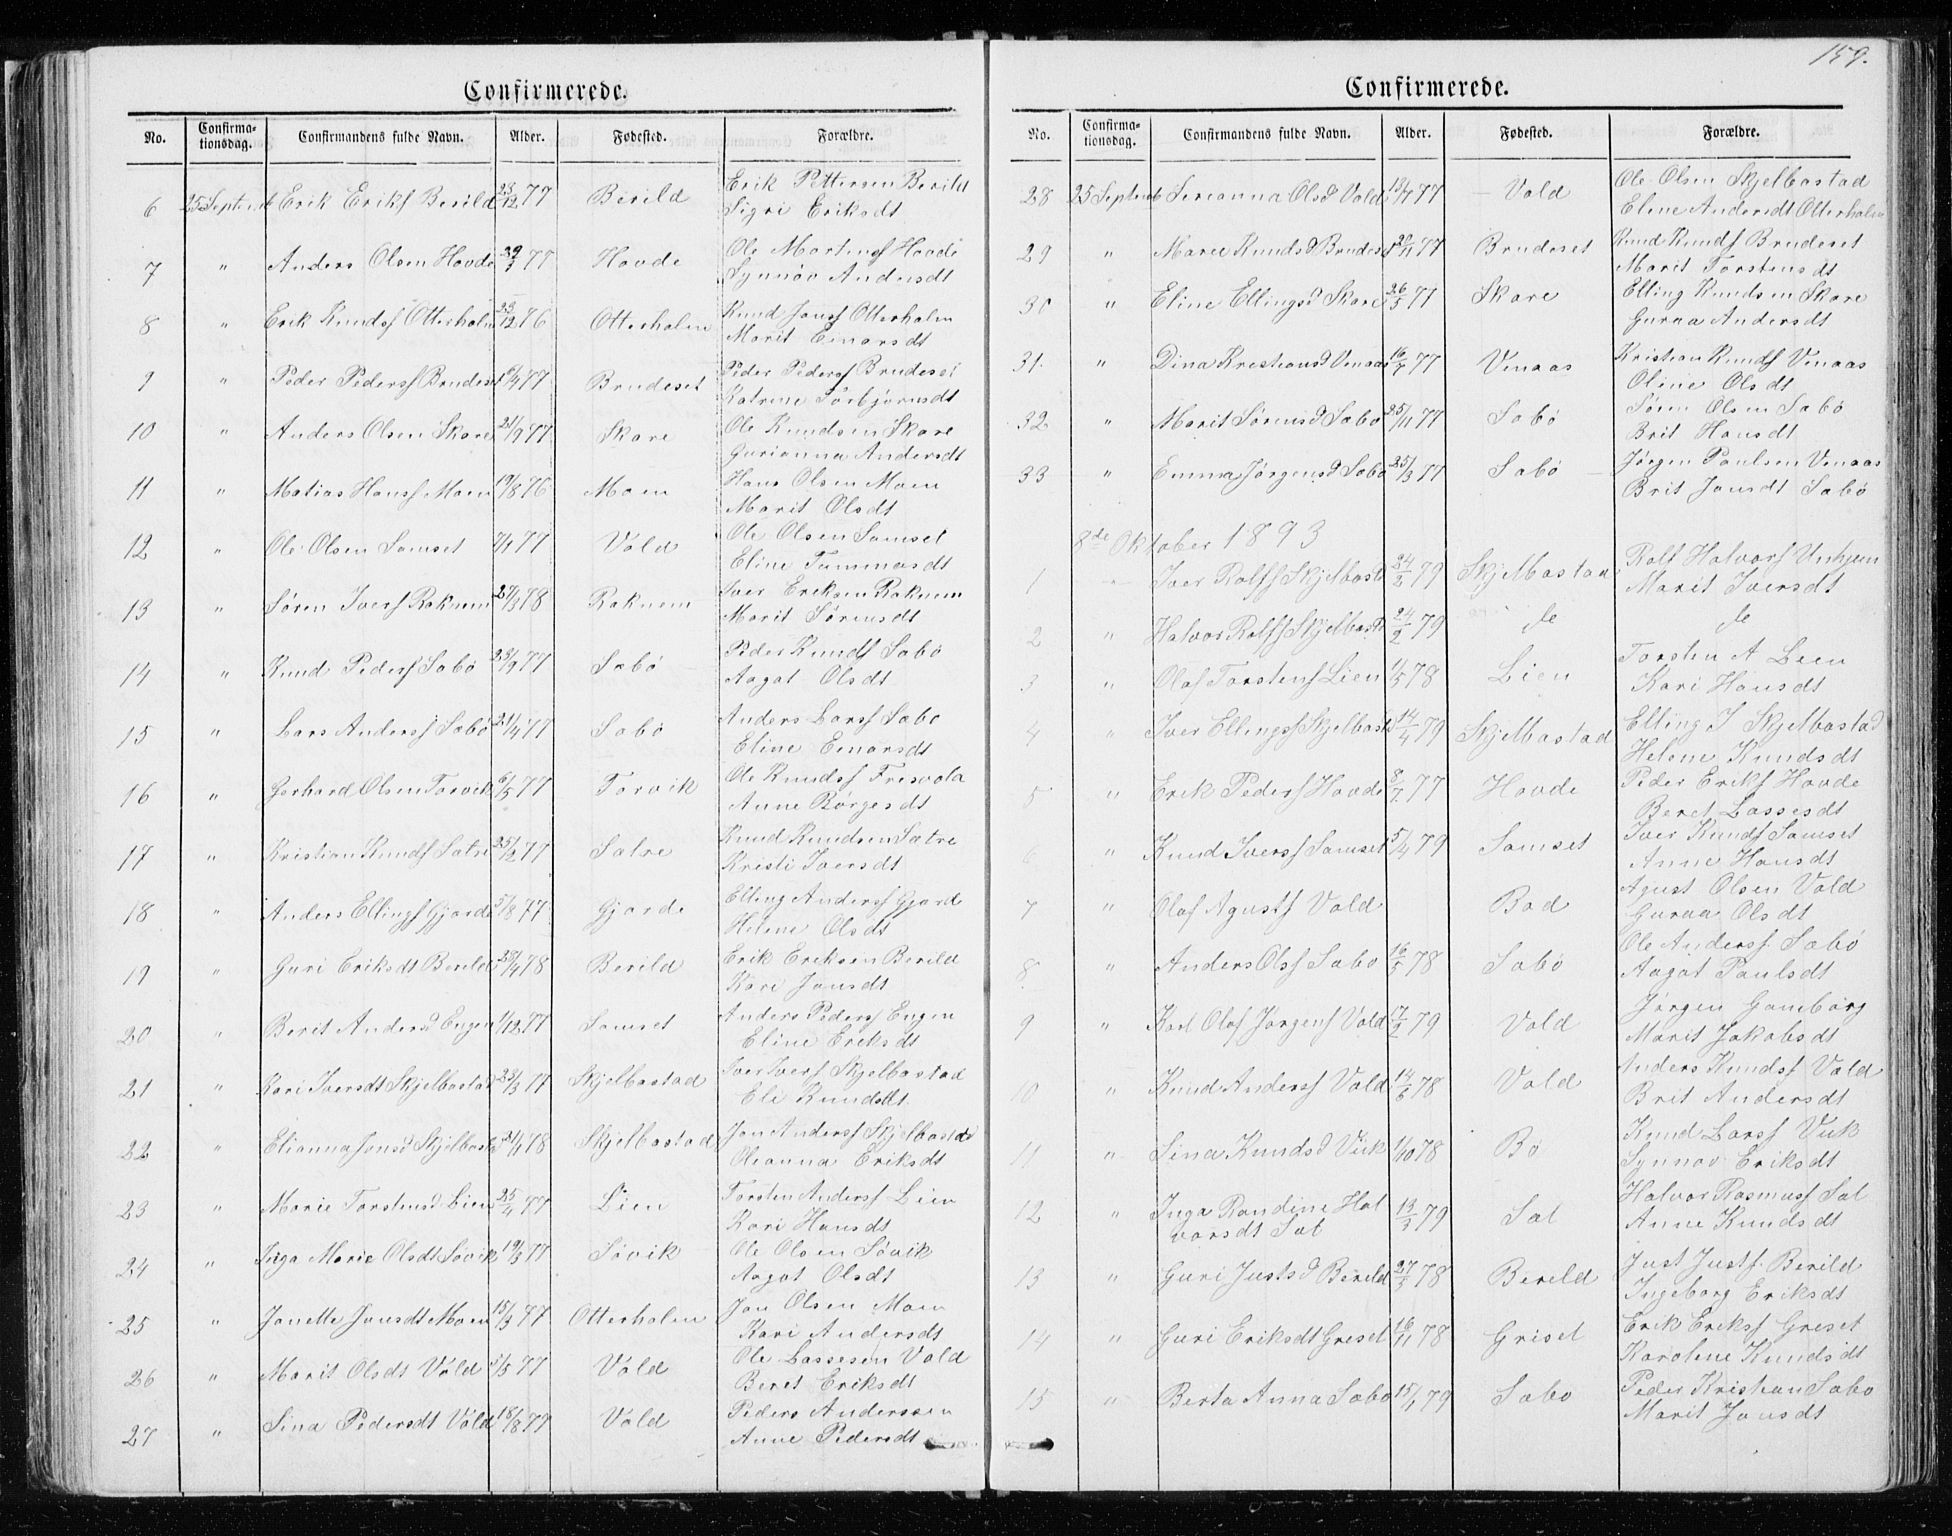 159.
Confirmerede.
No. Confirma-tionsdag. Confirmandens fulde Navn. Alder. Fødested. Forældre.
6 25 Septemb Erik Eriks Berild 23/12 77 Berild Erik Pettersen Berild
Sigri Eriksdt
7 " Anders Olsen Hovde 77 Hovde Ole Mortens Hovde
Synnøv Andersdt
8 " Erik Knuds Otterholm 23/12 76 Otterholm Knud Jons Otterholm
Marit Einarsdt
9 " Peder Peders Brudeset 77 Brudeset Peder Peders Brudeset
Katrine Torbjørnsdt
10 " Anders Olsen Skare 21/9 77 Skare Ole Knudsen Skare
Gurianna Andersdt
11 " Matias Hans Moen 19/8 76 Moen Hans Olsen Moen
Marit Olsdt
12 " Ole Olsen Samset 7/1 77 Vold Ole Olsen Samset
Eline Tammasdt
13 " Søren Ivers Raknem 27/3 78 Raknem Iver Eriksen Raknem
Marit Sørensdt
14 " Knud Peders Sabø 23/9 77 Sabø Peder Knuds Sabø
Aagot Olsdt
15 " Lars Anders Sabø 21/4 77 Sabø Anders Lars Sabø
Eline Einarsdt
16 " Gerhard Olsen Torvik 6/5 77 Torvik Ole Knuds Fresvola
Anne Børgesdt
17 " Kristian Knuds Satre 25/2 77 Satre Knud Knudsen Satre
Kristi Iversdt
18 " Anders Ellings Gjorde 5/8 77 Gjorde Elling Anders Gjorde
Helene Olsdt
19 " Guri Eriksdt Berild 28/4 78 Berild Erik Eriksen Berild
Kari Jonsdt
20 " Berit Andersd Engen 1/12 77 Samset Anders Peders Engen
Eline Eriksdt
21 " Kari Iversdt Skjelbostad 28/3 77 Skjelbostad Iver Ivers Skjelbostad
Eli Knudsdt
22 " Elianna Jonsd Skjelbost 21/1 78 Skjelbostad Jon Anders Skjelbostad
Oleanna Eriksdt
23 " Marie Torstensd Lien 25/4 77 Lien Torsten Anders Lien
Kari Hansdt
24 " Inga Marie Olsdt Søvik 19/3 77 Søvik Ole Olsen Søvik
Aagot Olsdt
25 " Janette Jonsdt Moen 15/3 77 Otterholm Jon Olsen Moen
Kari Andersdt
26 " Marit Olsdt Vold 77 Vold Ole Lassesen Vold
Beret Eriksdt
27 " Sina Pedersdt Vold 18/8 77 Vold Peders Anderssen
Anne Pedersdt
Confirmerede.
No. Confirma-tionsdag. Confirmandens fulde Navn. Alder. Fødested. Forældre.
28 25 Septemb Serianna Olsd Vold 13/7 77 Vold Ole Olsen Skjelbostad
Eline Andersdt Otterholm
29 " Maret Knudsd Brudeset 77 Brudeset Knud Knuds Brudeset
Marit Torstensdt
30 " Eline Ellingsd Skare 26/5 77 Skare Elling Knudsen Skare
Guraa Andersdt
31. " Dina Kristiansd Venaas 16/7 77 Venaas Kristian Knuds Venaas
Oline Olsdt
32 " Marit Sørensd Sabø 25/11 77 Sabø Søren Olsen Sabø
Brit Hansdt
33 " Emma Jørgensd Sabø 25/3 77 Sabø Jørgen Paulsen Venaas
Brit Jonsdt Sabø
8de Oktober 1893
1 " Iver Rolfs Skjelbost 24/2 79 Skjelbostad Rolf Halvors Unhjem
Marit Iversdt
2 " Halvor Rolfs Skjelbost 24/2 79 do do
3 " Olaf Torstens Lien 1/5 78 Lien Torsten A Lien
Kari Hansdt
4 " Iver Ellings Skjelbost 14/4 79 Skjelbostad Elling I Skjelbostad
Helene Knudsdt
5 " Erik Peders Hovde 8/7 77 Hovde Peder Eriks Hovde
Beret Lassesdt
6 " Knud Ivers Samset 5/4 79 Samset Iver Knuds Samset
Anne Hansdt
7 " Olaf Agusts Vold Bod Agust Olsen Vold
Guraa Olsdt
8 " Anders Ols Sabø 16/5 78 Sabø Ole Anders Sabø
Aagot Paulsdt
9 " Karl Olaf Jørgens Vold 17/2 79 Vold Jørgen Gamborg
Marit Jakobsdt
10 " Knud Anders Vold 14/6 78 Vold Anders Knuds Vold
Brit Andersdt
11 " Sina Knudsd Viik 1/10 78 Bø Knud Lars Viik
Synnøv Eriksdt
12 " Inga Randine Hal
vorsdt Sat 13/3 79 Sat Halvor Rasmus Sat
Anne Knudsdt
13 " Guri Justsd Berild 27/5 78 Berild Just Justs Berild
Ingeborg Eriksdt
14 " Guri Eriksdt Griset 16/11 78 Griset Erik Eriks Griset
Karoline Knudsdt
15 " Berta Anna Sabø 15/1 79 Sabø Peder Kristian Sabø
Marit Jonsdt